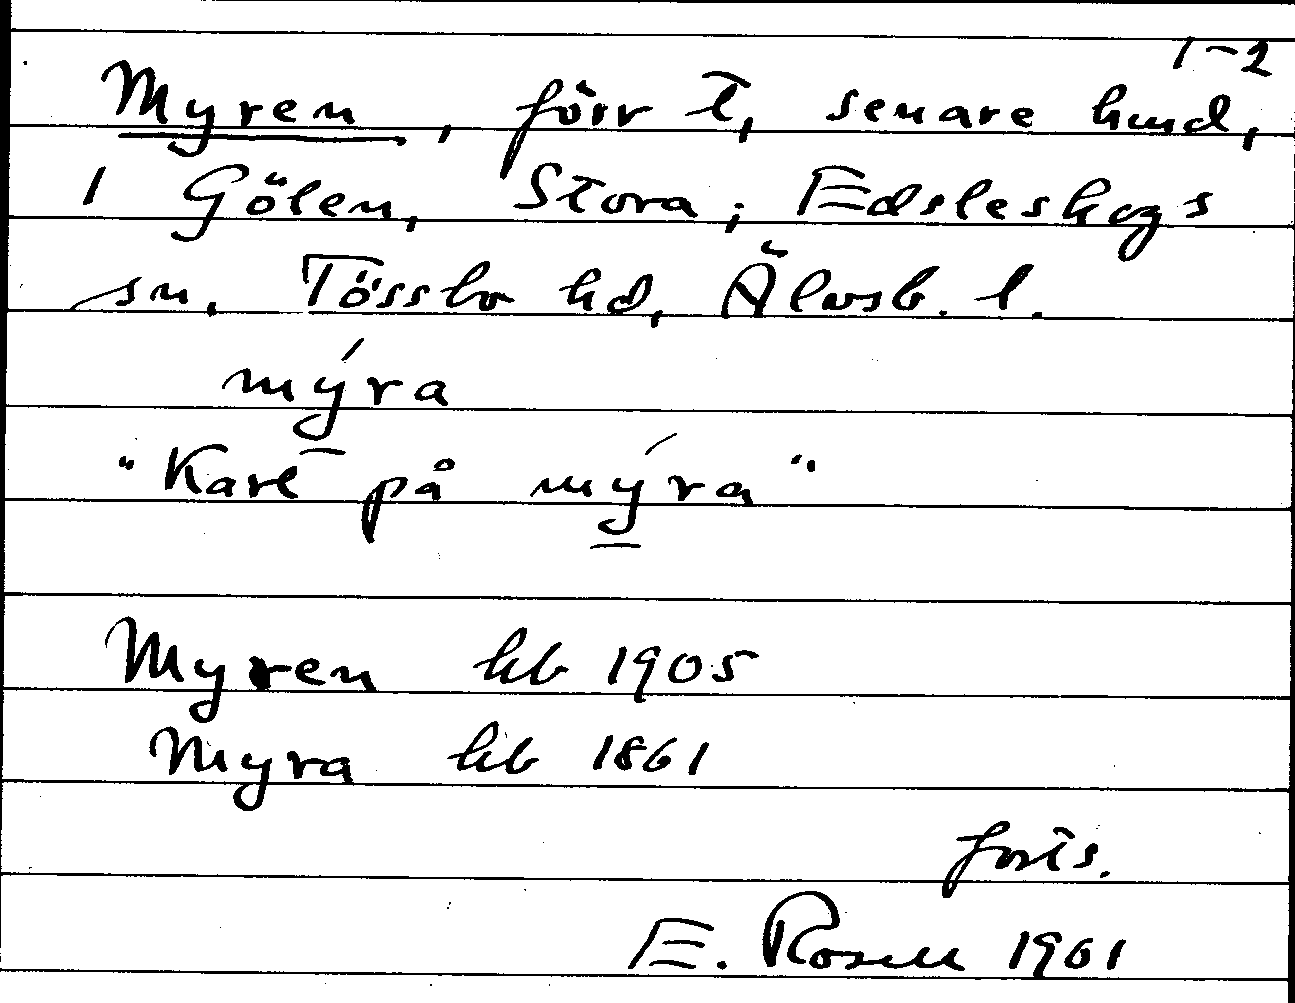 1-2
Myren, förr t, senare hmd,
1 Gölen, Stora; Edsleskogs
sn, Tössbo hd, Älvsb. l.
mýra
"Karl på mýra"
Myren hb 1905
Myra hb 1861
forts.
E. Rosell 1961